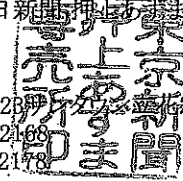 日新聞押上あずま
東京新聞
押上あずま
専売所印
2168
2178